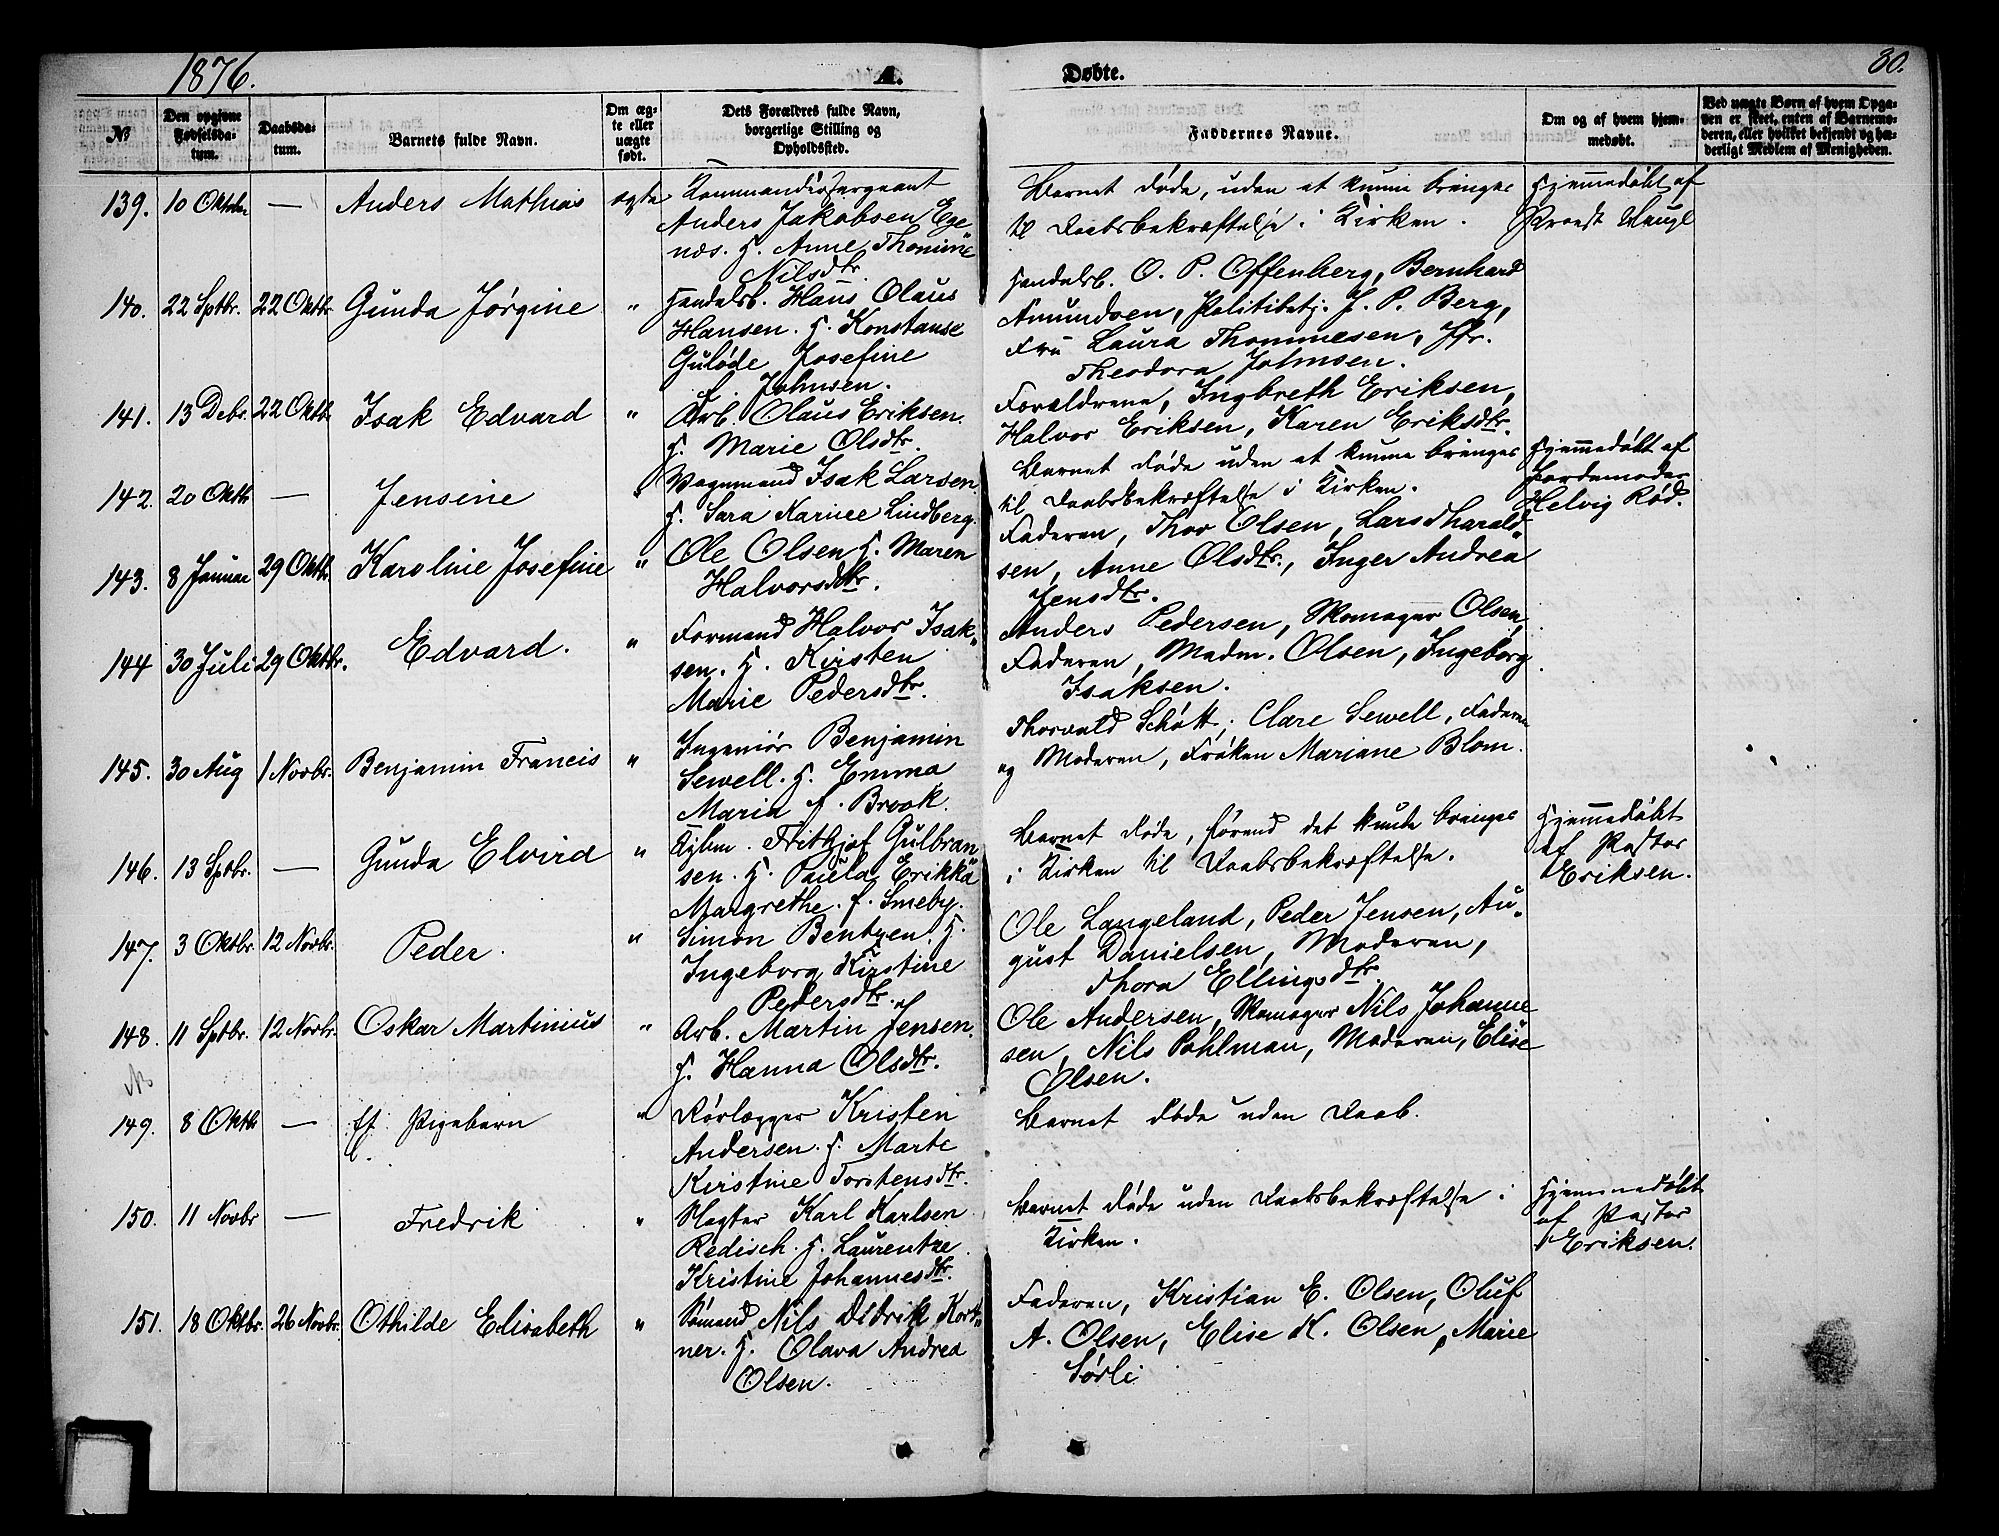 1876. A. Døbte. 80.
№
Den opgivne Fødselsdatum.
Daabsdatum.
Barnets fulde Navn.
Om ægte eller uægte født.
Dets Forældres fulde Navn, borgerlige Stilling og Opholdssted.
Faddernes Navne.
Om og af hvem hjemmedøbt.
Ved uægte Børn af hvem Opgaven er skeet, enten af Barnemoderen, eller hvilket bekjendt og hæderligt Medlem af Menigheden.
139. 10 Oktober — Anders Mathias ægte
Kommandérsergeant
Anders Jakobsen Ege-
næs. H. Anne Thomine
Nilsdtr.
Barnet døde, uden at kunne bringes
til Daabsbekræftelse i Kirken.
Hjemmedøbt af
Provst Hauge
140. 22 Sptbr. 22 Oktbr. Gunda Jørgine "
Handelsb. Hans Olaus
Hansen. H. Konstanse
Guløde Josefine
f. Johnsen.
Handelsb. O. P. Offenberg, Bernhard
Amundsen, Politibetj. J. P. Berg,
Fru Laura Thommesen, Jfr.
Theodora Johnsen.
141. 13 Debr. 22 Oktb. Isak Edvard "
Arb. Olaus Eriksen.
H. Marie Olsdtr.
Forældrene, Ingbreth Eriksen,
Halvor Eriksen, Karen Eriksdtr.
142. 20 Oktb. — Jensine "
Vognmand Isak Larsen.
H. Sara Karine Lindberg.
Barnet døde uden at kunne bringes
til Daabsbekræftelse i Kirken.
Hjemmedøbt af
Jordemoder
Helvig Rød.
143. 8 Januar 29 Oktb. Karoline Josefine "
Ole Olsen H. Maren
Halvorsdtr.
Faderen, Thor Olsen, Lars Tharald-
sen, Anne Olsdtr., Inger Andrea
Jensdtr.
144 30 Juli 29 Oktbr. Edvard. "
Formand Halvor Isak-
sen. H. Kirsten
Marie Pedersdtr.
Anders Pedersen, Skomager Olsen,
Faderen, Madm. Olsen, Ingeborg
Isaksen.
145. 30 Aug 1 Novbr. Benjamin Francis "
Ingeniør Benjamin
Sewell. H. Emma
Maria f. Brook.
Thorvald Schøtt, Clare Sewell, Faderen
og Moderen, Frøken Mariane Blom.
146. 13 Sptbr. — Gunda Elvira "
Frithjof Gulbran-
sen. H. Paula Erikka
Margrethe. f. Smeby.
Barnet døde, førend det kunde bringes
i Kirken til Daabsbekræftelse.
Hjemmedøbt
af Pastor
Eriksen.
147. 3 Oktbr. 12 Novbr. Peder. "
Simon Bentzen. H.
Ingeborg Kirstine
Pedersdtr.
Ole Langeland, Peder Jensen, Au-
gust Danielsen, Moderen,
Thora Ellingsdtr
148. 11 Sptbr. 12 Novbr. Oskar Martinius "
Arb. Martin Jensen.
H. Hanna Olsdtr.
Ole Andersen, Skomager Nils Johanne
sen, Nils Pohlman, Moderen, Elise
Olsen.
149. 8 Oktb — Pigebarn "
Rørlægger Kristen
Andersen. H. Marte
Kirstine Torstensdtr.
Barnet døde uden Daab.
150. 11 Novbr — Fredrik "
Slagter Karl Karlsen
Redisch. H. Laurentze
Kristine Johannesdtr.
Barnet døde uden Daabsbekræftelse i
Kirken.
Hjemmedøbt
af Pastor
Eriksen.
151. 18 Oktbr. 26 Novbr. Othilde Elisabeth "
Sømand Nils Didrik Kort-
ner. H. Olava Andrea
Olsen.
Faderen, Kristian E. Olsen, Oluf
A. Olsen, Elise K. Olsen, Marie
Sørli